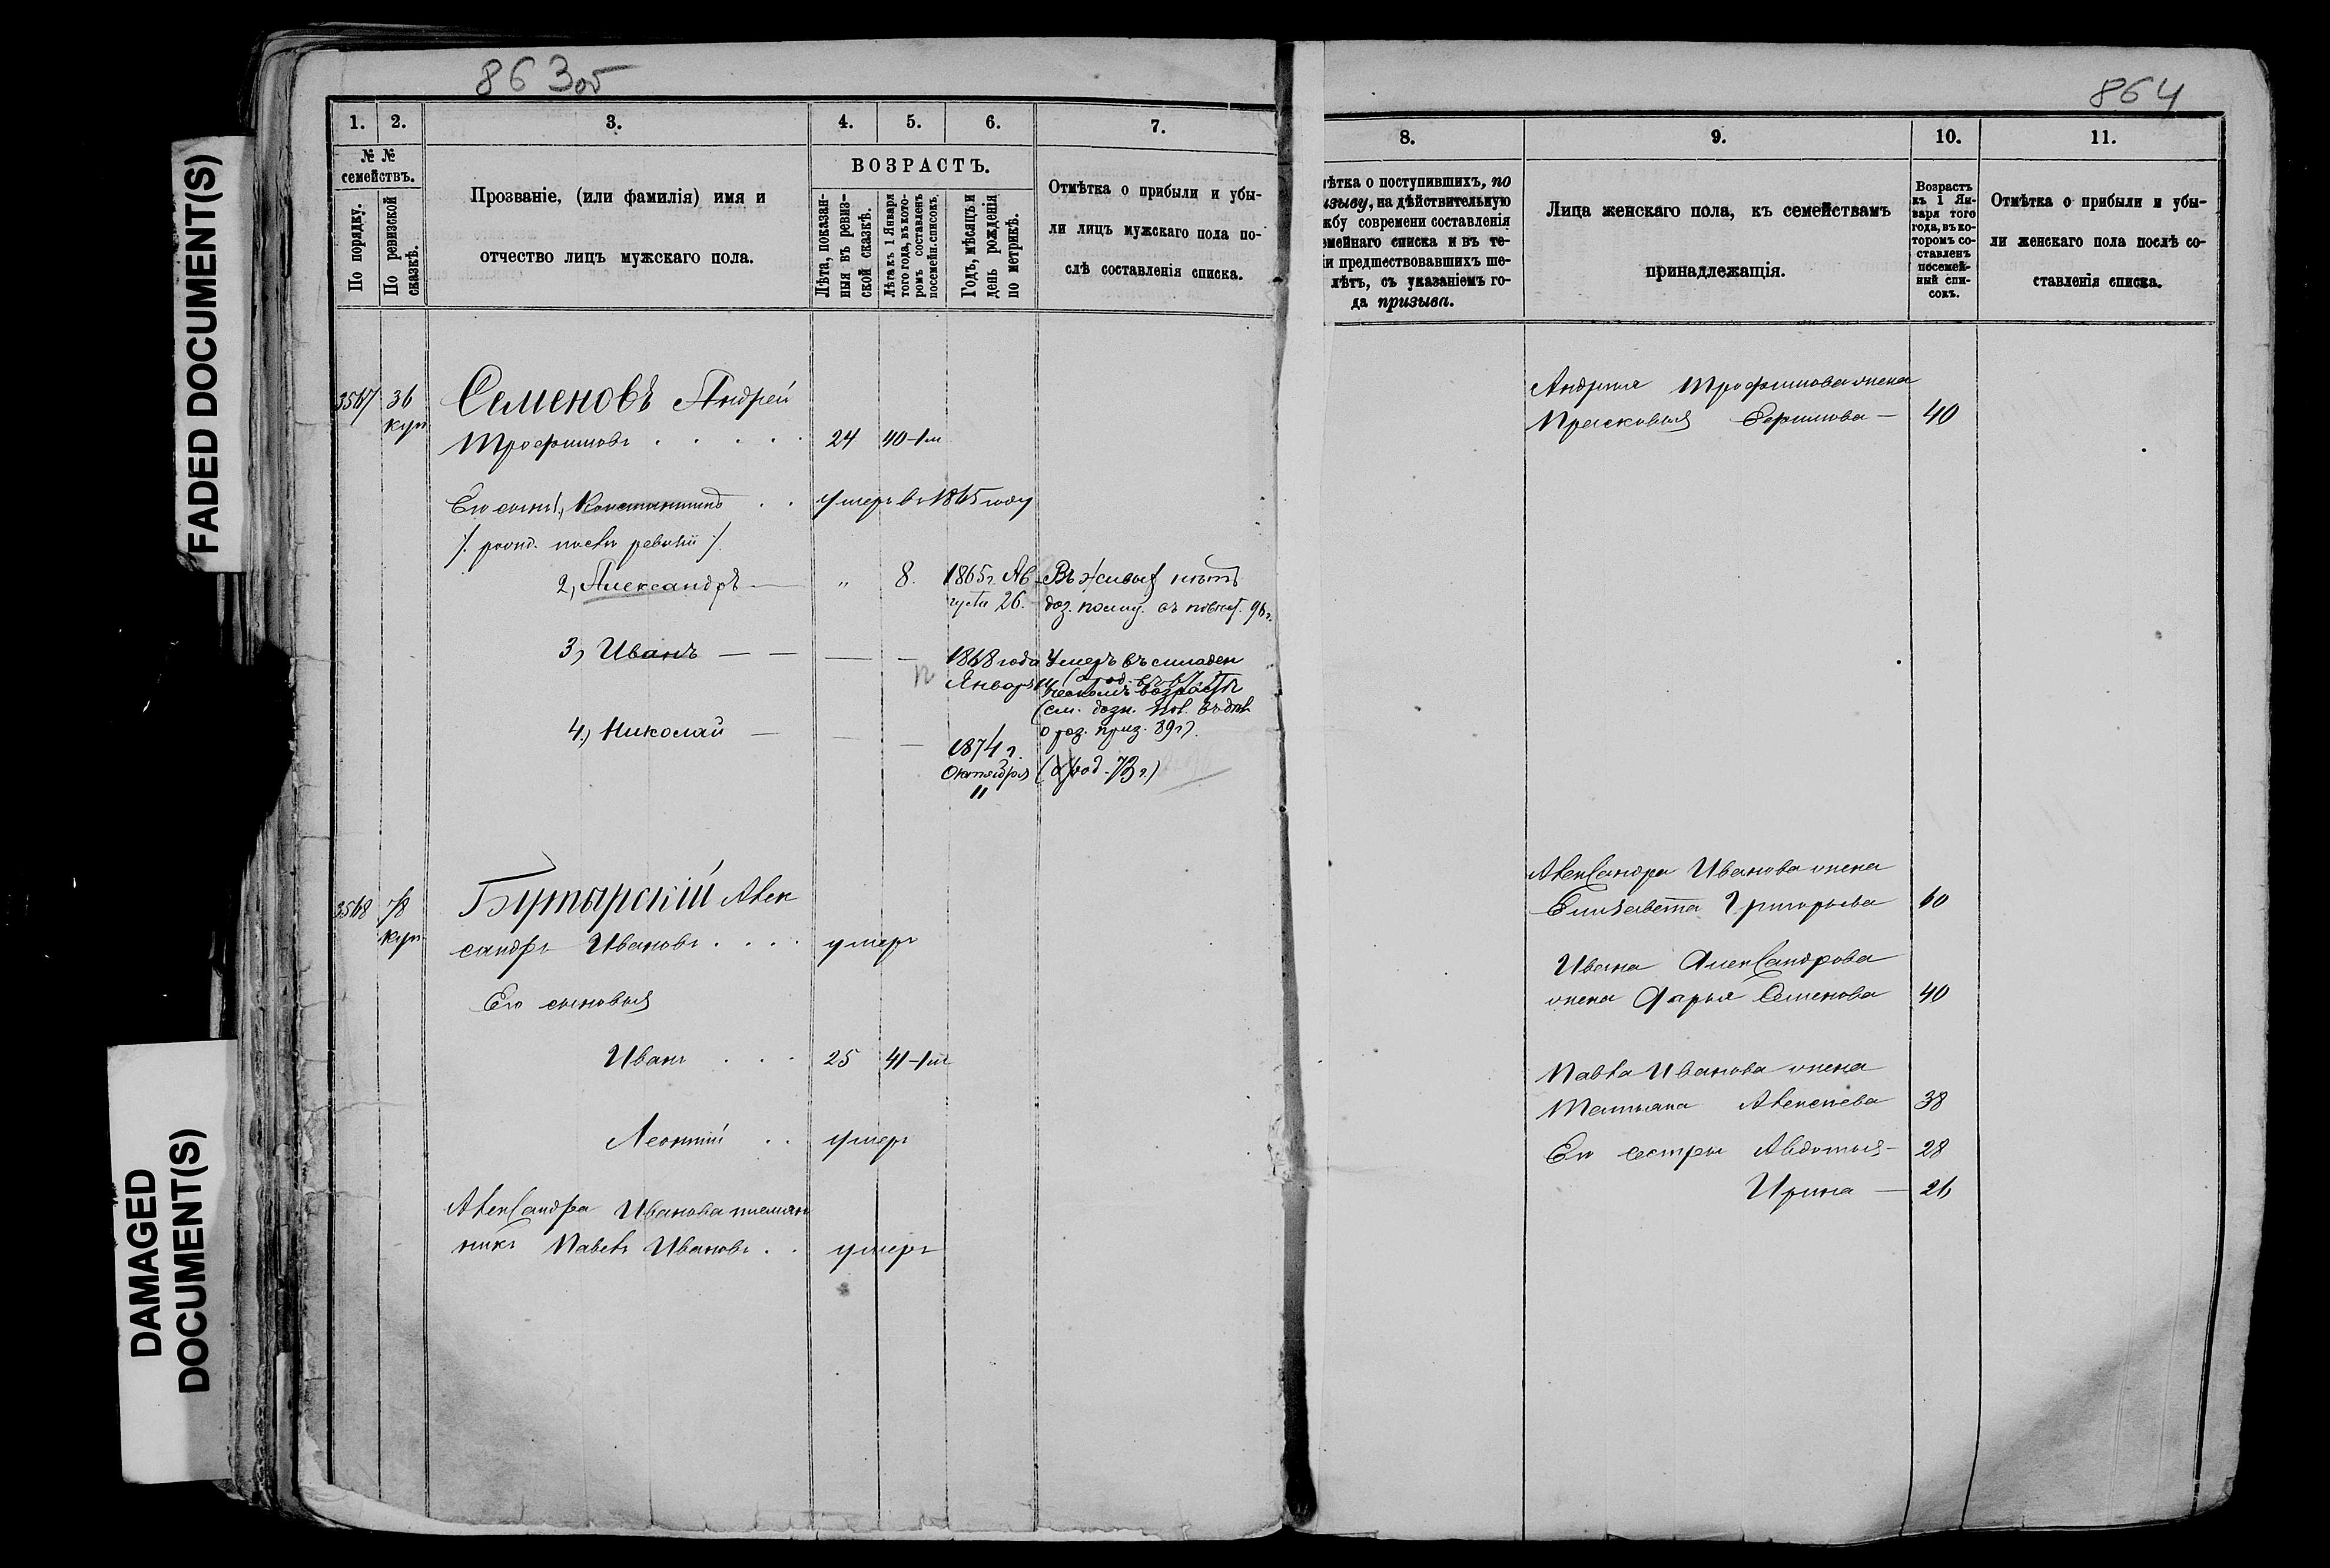 863об
864
FADED DOCUMENT(S)
DAMAGED
DOCUMENT(S)
1. 2. 3. 4. 5. 6. 7.
№ №
семействъ.
По порядку.
По ревизской
сказкѣ.
Прозваніе, (или фамилія) имя и
отчество лицъ мужскаго пола.
ВОЗРАСТЪ.
Лѣта, показан-
ныя въ ревиз-
ской сказкѣ.
Лѣта къ 1 Января
того года, въ кото-
ромъ составленъ
посемейн. списокъ.
Годъ, мѣсяцъ и
день рожденія
по метрикѣ.
Отмѣтка о прибыли и убы-
ли лицъ мужскаго пола по-
слѣ составленія списка.
3567 36 Семеновъ Андрей
куп
Трофимовъ . . . . . 24 40-1м
Его сынъ 1, Константинъ . . умеръ въ 1865 году
/. рожд. послѣ ревизіи /.
2, Александръ — „ 8. 1865 г. Ав- Въ живыхъ нѣтъ
густа 26. доз. полиц. 96 г.
3, Иванъ — — — — 1868 года Умеръ въ младен
Января
ческомъ возрастѣ
(см. дозн.
4.) Николай — — — 1874 г. приз. 89 г.).
Октября (род. 73 г.)
11
3568 78 Бутырскій Алек
куп сандръ Ивановъ . . . . умеръ
Его сыновья
Иванъ . . . 25 41-1м
Леонтій . . умеръ
Александра Иванова племян
никъ Павелъ Ивановъ . . умеръ
8. 9. 10. 11.
ѣтка о поступившихъ, по
изыву, на дѣйствительную
жбу современи составленія
емейнаго списка и въ те-
и предшествовавшихъ ше-
лѣтъ, съ указаніемъ го-
да призыва.
Лица женскаго пола, къ семействамъ
принадлежащія.
Возрастъ
къ 1 Ян-
варя того
года, въ ко-
торомъ со-
ставленъ
посемей-
ный спи-
сокъ.
Отмѣтка о прибыли и убы-
ли женскаго пола послѣ со-
ставленія списка.
Андрея Трофимова жена
Прасковья Ефимова — 40
Александра Иванова жена
Елизавета Григорьева 60
Ивана Александрова
жена Дарья Семенова 40
Павла Иванова жена
Татьяна Алексѣева 38
Его сестры Авдотья — 28
Ирина — 26